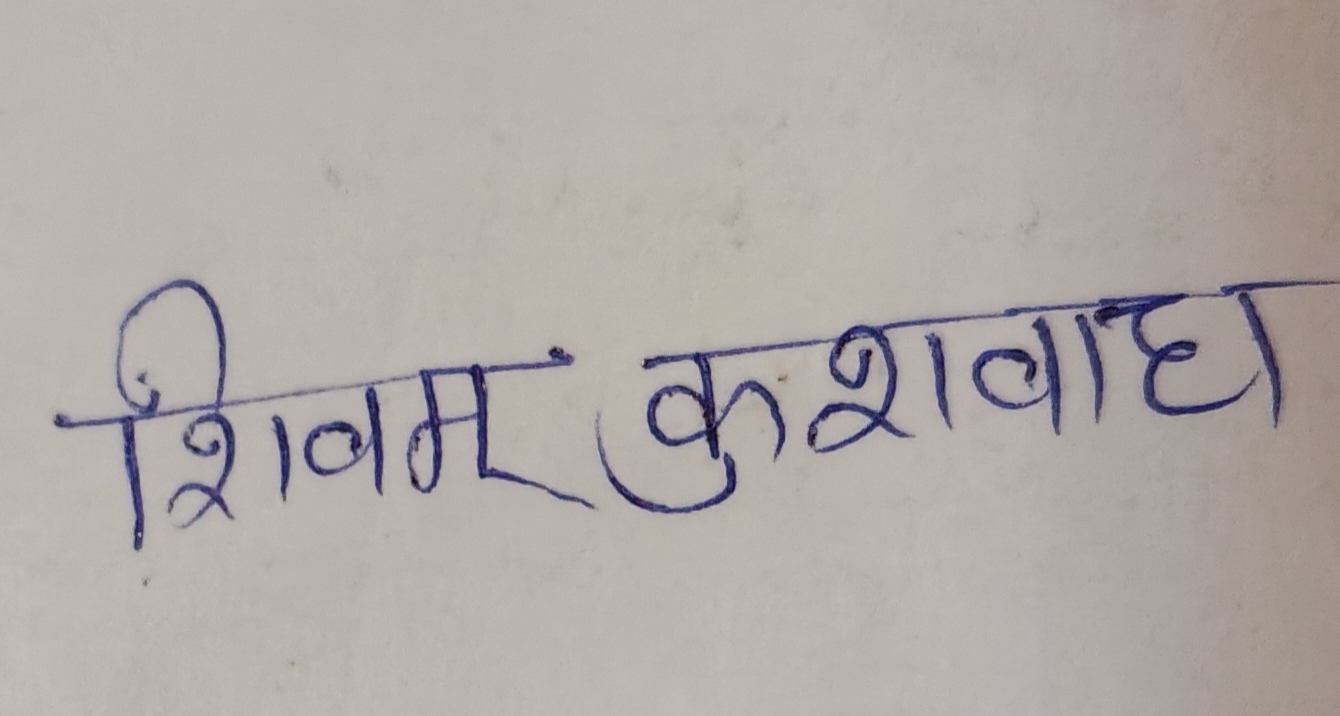 शिवम कुशवाहा